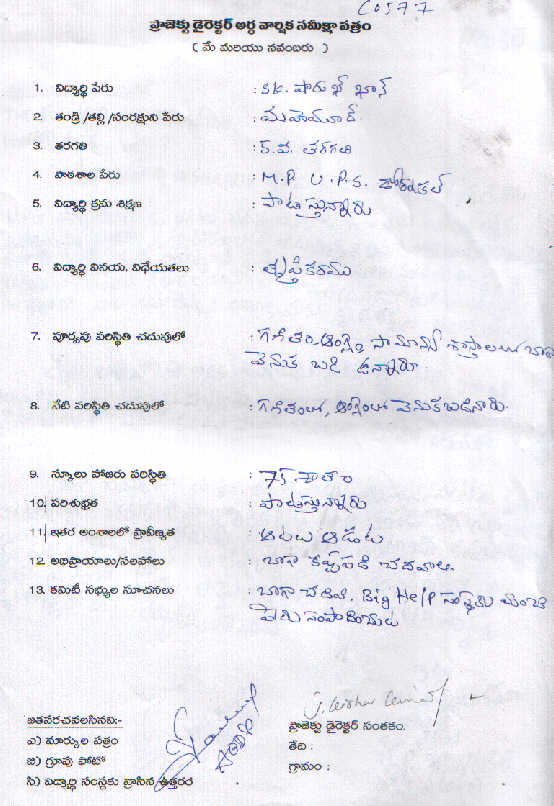 C0577
ప్రాజెక్టు డైరెక్టర్ అర్ధ వార్షిక సమీక్షా పత్రం
( మే మరియు నవంబరు )
1. విద్యార్థి పేరు : SK. షారుఖ్ ఖాన్
2. తండ్రి /తల్లి /సంరక్షకుని పేరు : మహమూద్
3. తరగతి : 5.వ. తరగతి
4. పాఠశాల పేరు : M.P. U.P.S.
5. విద్యార్థి క్రమ శిక్షణ : పాటిస్తున్నారు
6. విద్యార్థి వినయ, విధేయతలు : తృప్తికరము
7. పూర్వపు పరిస్థితి చదువులో : గణితం, ఆంగ్లం సామాన్య శాస్త్రాలలో బాగా
వెనుక బడి ఉన్నారు.
8. నేటి పరిస్థితి చదువులో : గణితంలో, ఆంగ్లంలో వెనుకబడినారు.
9. స్కూలు హాజరు పరిస్థితి : 75 శాతం
10. పరిశుభ్రత : పాటిస్తున్నారు
11. ఇతర అంశాలలో ప్రావీణ్యత : ఆటలు ఆడుట
12. అభిప్రాయాలు/సలహాలు : బాగా కష్టపడి చదవాలి.
13. కమిటీ సభ్యుల సూచనలు : బాగా చదివి. Big Help సంస్థకు మంచి
పేరు సంపాదించాలి
జతపరచవలసినవి:-
ప్రాజెక్టు డైరెక్టర్ సంతకం.
ఎ) మార్కుల పత్రం
తేది :
బి) గ్రూపు ఫోటో
గ్రామం :
సి) విద్యార్థి సంస్థకు వ్రాసిన ఉత్తరం